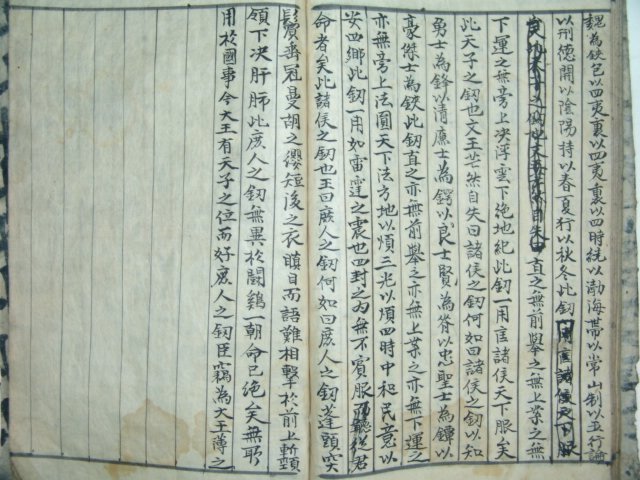 魏為鋏包以四夷裏以四夷裏以四時繞以渤海帶以常山制以五行論
以刑德開以陰陽持以春夏行以秋冬此釼用匡諸侯天下服
此天子之釼也文王芒然自失曰直之無前舉之無上業之無
下運之無旁上决浮雲下絶地紀此釼一用匡諸侯天下服矣
此天子之釼也文王芒然自失曰諸侯之釼何如曰諸侯之釼以知
勇士為鋒以清廉士為鍔以良士賢為脊以忠聖士為鐔以
豪傑士為鋏此釼直之亦無前舉之亦無上業之亦無下運之
亦無旁上法圓天下法方地以順三光以順四時中和民意以
安四鄉此釼一用如雷霆之震也四封之内無不賓服而聽從君
命者矣此諸侯之釼也王曰庶人之釼何如曰庶人之釼蓬頭突
鬢垂冠曼胡之纓短後之衣瞋目而語難相擊於前上斬頸
領下决肝肺此庶人之釼無異於鬪鷄一朝命已絶矣無所
用於國事今大王有天子之位而好庶人之釼臣竊為大王薄之